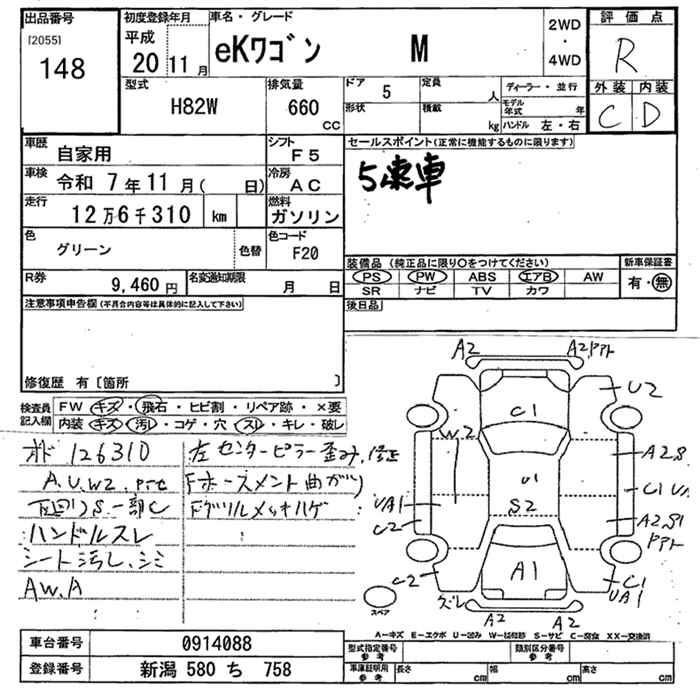 出品番号 初度登録年月 車名・グレード 評価点
[2055] 148
平成 20 11月 eKワゴン M 2WD・4WD R
型式 排気量 ドア 5 定員 人 ディーラー・並行 外装 内装
H82W 660 CC 形状 積載 kg モデル年式 年 C D
ハンドル 左・右
車歴 自家用 シフト F5 セールスポイント(正常に機能するものに限ります)
車検 令和 7年11月( 日) 冷房 AC 5速車
走行 12万6千310 km 燃料 ガソリン
色 グリーン 色替 色コード F20
装備品 (純正品に限り○をつけてください) 新車保証書
R券 9,460円 名変通知期限 月 日 PS PW ABS エアB AW 有・無
SR ナビ TV カワ
注意事項申告欄(不具合内容等は具体的に記入して下さい) 後日品
修復歴 有〔箇所 〕
検査員記入欄 FW キズ・飛石・ヒビ割・リペア跡・×要
内装 キズ・汚れ・コゲ・穴・スレ・キレ・破レ
オド 126310 左センターピラー歪み、修正
A.U.W2. Fホースメント曲がり
下回りS一部C Fグリルメッキハゲ
ハンドルスレ
シート汚レ、シミ
AW.A
A2 A2
U2
C1
W2
A2.S.
U1
C1
UA1 S2
A2.S1
C2
C2 A1 C1
UA1
ズレ
A2 A2
スペア
A―キズ E―エクボ U―凹み W―補修跡 S―サビ C―腐食 XX―交換済
車台番号 0914088 型式指定番号 参考 類別区分番号 参考
登録番号 新潟 580 ち 758 車庫証明用 参考 長さ cm 幅 cm 高さ cm